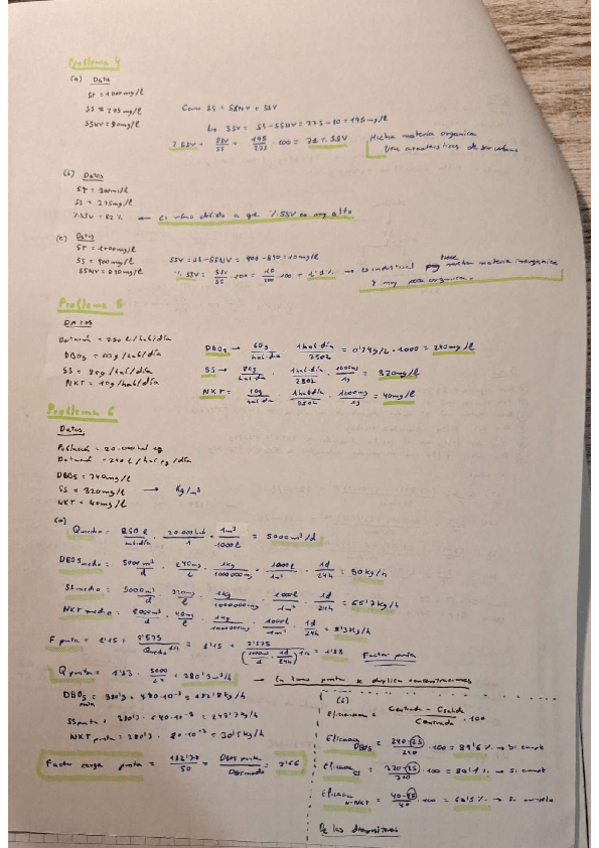 Problema 4
(a) Data
ST = 1000 mg/l
SS = 225 mg/l
SSNV = 80 mg/l
Como SS = SSNV + SSV
SSV = SS - SSNV = 225 - 80 = 145 mg/l
% SSV = SSV/SS = 145/225 · 100 = % SSV
Mucha materia organica
(b) Datos
SS = 225 mg/l
% SSV = 82 %
% SSV es muy alto
(c) Datos
ST = 1000 mg/l
SS = 900 mg/l
SSNV = 890 mg/l
SSV = SS - SSNV = 900 - 890 = 10 mg/l
% SSV = SSV/SS · 100 = 10/900 · 100 = 1'1 %
es industrial mucha materia inorganica
y muy poca organica.
Problema 5
DATOS
Dotación = 250 l/hab/día
DBO5 = 60 g/hab/día
SS = 80 g/hab/día
NKT = 10 g/hab/día
DBO5 → 60g/hab·dia · 1hab·día/250l = 0'24 g/l · 1000 = 240 mg/l
SS → 80g/hab·dia · 1hab·día/250l · 1000mg/1g = 320 mg/l
NKT = 10g/hab·dia · 1hab·día/250l · 1000mg/1g = 40 mg/l
Problema 6
Datos
Población = 20.000 hab eq
Dotación = 250 l/hab eq/día
DBO5 = 240 mg/l
SS = 320 mg/l → Kg/m³
NKT = 40 mg/l
(a)
Qmedio = 250 l/hab·día · 20.000 hab/1 · 1m³/1000l = 5000 m³/d
DBO5 medio = 5000m³/d · 240mg/l · 1kg/1000000mg · 1000l/1m³ · 1d/24h = 50 kg/h
SS medio = 5000m³/d · 320mg/l · 1kg/1000000mg · 1000l/1m³ · 1d/24h = 66'7 kg/h
NKT medio = 5000m³/d · 40mg/l · 1kg/1000000mg · 1000l/1m³ · 1d/24h = 8'3 kg/h
F punta = 1'15 + 2'575/Qmedio^1/4 = 1'15 + 2'575/(5000m³/d · 1d/24h)^1/4 = 1'83
Factor punta
Q punta = 1'83 · 5000/24 = 380'3 m³/h → En hora punta se duplica concentraciones
DBO5 punta = 380'3 · 480·10⁻³ = 182'8 kg/h
SS punta = 380'3 · 640·10⁻³ = 243'3 kg/h
NKT punta = 380'3 · 80·10⁻³ = 30'5 kg/h
Factor carga punta = /50 = DBO5 punta/DBO medio = 3'66
Eficiencia = Centrada - Csalida/Centrada · 100
Eficacia DBO5 = 240 - 25/240 · 100 = 89'6 % → Si
Eficacia SS = 320 - /320 · 100 = % → Si
Eficacia = 40 - /40 · 100 = % → Si
De las